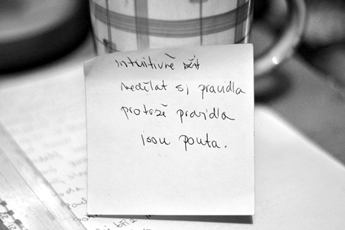 intuitivně žít
nedělat si pravidla
protože pravidla
jsou pouta.